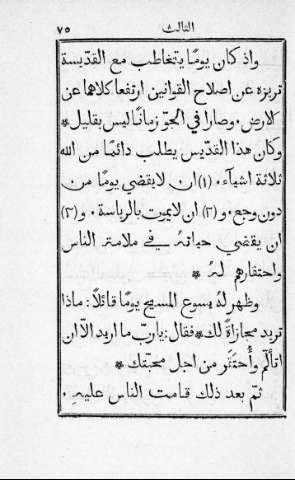 الثالث ٧٥
واذ كان يومًا يتخاطب مع القدّيسة
تريزه عن اصلاح القوانين ارتفعا كلاها عن
الارض. وصارا في الجوّ زمانًا ليس بقليل *
وكان هذا القدّيس يطلب دائمًا من الله
ثلاثة اشيآء. (١) ان لا يقضي يومًا من
دون وجع. و (٢) ان لا يموت بالرياسة. و (٣)
ان يقضي حياتهُ في ملامة الناس
واحتقارهم لهُ *
وظهر لهُ يسوع المسيح يومًا قائلًا: ماذا
تريد مجازاةً لك* فقال: يا ربّ ما اريد الّا ان
اتألّم وأُحتَقَر من اجل محبّتك *
ثمّ بعد ذلك قامت الناس عليهِ.